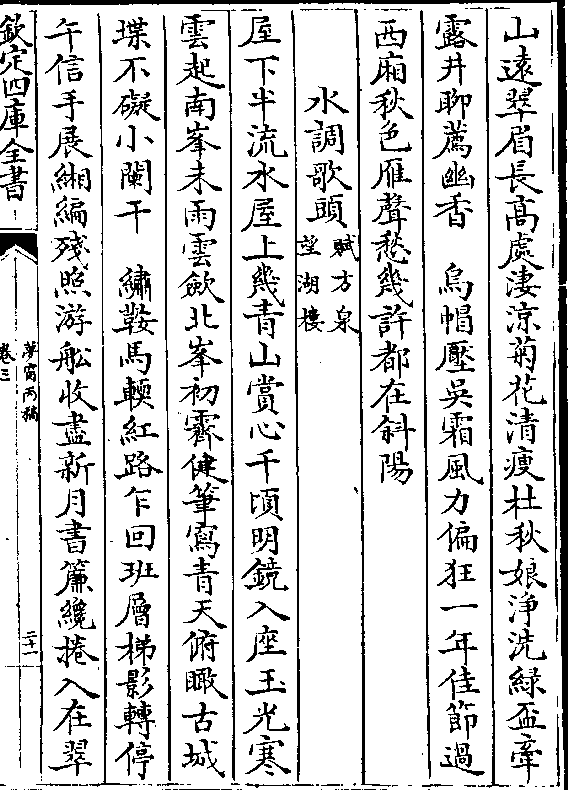 山遠翠眉長高處淒涼菊花清瘦杜秋娘淨洗綠盃牽
露井聊薦幽香　烏帽壓吳霜風力偏狂一年佳節過
西廂秋色雁聲愁幾許都在斜陽
水調歌頭賦方泉望湖樓
屋下半流水屋上幾青山賞心千頃明鏡入座玉光寒
雲起南峯未雨雲斂北峯初霽健筆寫青天俯瞰古城
堞不礙小闌干　繡鞍馬輭紅路乍回班層梯影轉停
午信手展緗編殘照游舩收盡新月書簾纔捲人在翠
欽定四庫全書
夢窗丙稿
卷三
二十一